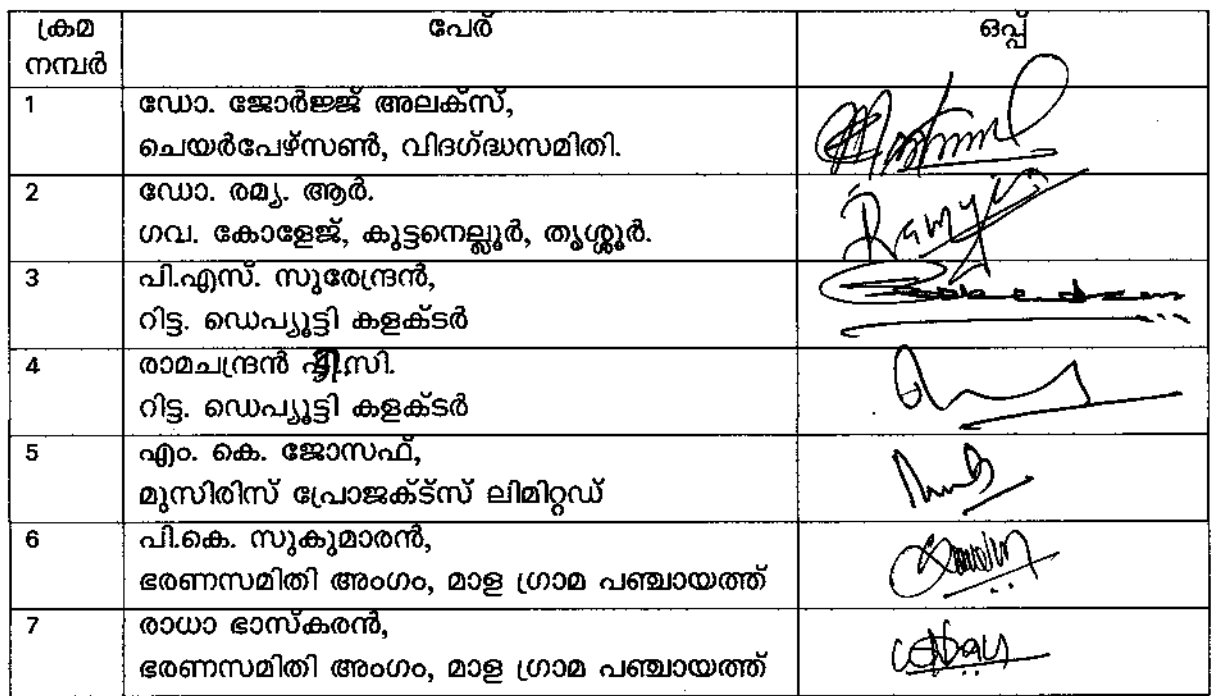 ക്രമ നമ്പർ പേര് ഒപ്പ്
1 ഡോ. ജോർജ്ജ് അലക്സ്,
ചെയർപേഴ്സൺ, വിദഗ്ദ്ധസമിതി.
2 ഡോ. രമ്യ. ആർ. Ramya
ഗവ. കോളേജ്, കുട്ടനെല്ലൂർ, തൃശ്ശൂർ.
3 പി.എസ്. സുരേന്ദ്രൻ,
റിട്ട. ഡെപ്യൂട്ടി കളക്ടർ
4 രാമചന്ദ്രൻ സി.
റിട്ട. ഡെപ്യൂട്ടി കളക്ടർ
5 എം. കെ. ജോസഫ്,
മുസിരിസ് പ്രോജക്ട്സ് ലിമിറ്റഡ്
6 പി.കെ. സുകുമാരൻ,
ഭരണസമിതി അംഗം, മാള ഗ്രാമ പഞ്ചായത്ത്
7 രാധാ ഭാസ്കരൻ,
ഭരണസമിതി അംഗം, മാള ഗ്രാമ പഞ്ചായത്ത്